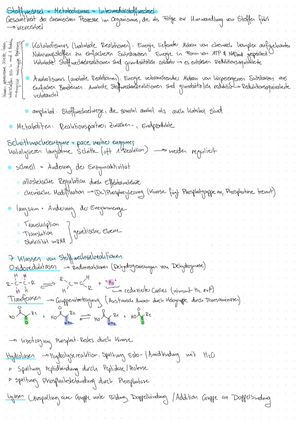 Stoffwechsel = Metabolismus = Intermediärstoffwechsel
Gesamtheit der chemischen Prozesse im Organismus, die als Folge zur Umwandlung von Stoffen führt
→ vernetzt
Katabolismus (katabole Reaktionen): Energie liefernder Abbau von chemisch komplex aufgebauten
Nahrungsstoffen zu einfacheren Substanzen. Energie in Form von ATP & NADH gespeichert
Katabole Stoffwechselreaktionen sind grundsätzlich oxidativ → es entstehen Reduktionsäquivalente
Anabolismus (anabole Reaktionen): Energie verbrauchender Aufbau von körpereigenen Substanzen aus
einfachen Bausteinen. Anabole Stoffwechselreaktionen sind grundsätzlich reduktiv → Reduktionsäquivalente
verbraucht
amphibol: Stoffwechselwege, die sowohl anabol als auch katabol sind
Metaboliten: Reaktionspartner, Zwischen-, Endprodukte
Schrittmacherenzyme = pace maker enzymes
katalysieren langsamste Schritte (oft irreversibel) → werden reguliert
schnell = Änderung der Enzymaktivität
allosterische Regulation durch Effektormoleküle
chemische Modifikation → (De)Phosphorylierung (Kinase fügt Phosphatgruppe an, Phosphatase trennt)
langsam = Änderung der Enzymmenge
Transkription
Translation
Stabilität mRNA
genetische Ebene
7 Klassen von Stoffwechselreaktionen
Oxidoreduktasen → Redoxreaktionen (Dehydrogenierungen von Dehydrogenase)
→ reduziertes Coenzym
Transferasen → Gruppenübertragung (Austausch Amin durch Ketogruppe durch Transaminasen)
→ Übertragung Phosphat-Rest durch Kinase
Hydrolasen → Hydrolysereaktion: Spaltung Ester-/Amidbindung mit H₂O
Spaltung Peptidbindung durch Peptidase/Protease
Spaltung Phosphatesterbindung durch Phosphatase
Lyasen: Abspaltung einer Gruppe unter Bildung Doppelbindung / Addition Gruppe an Doppelbindung